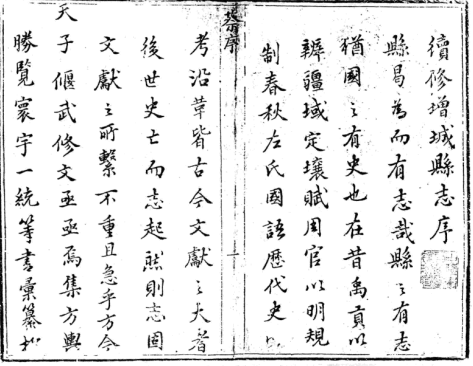 續修增城縣志序
縣曷為而有志哉縣之有志
猶國之有史也在昔禹貢以
辨疆域定壤賦周官以明規
制春秋左氏國語歷代史以
考沿革皆古今文獻之大者
後世史亡而志起然則志固
文獻之所繫不重且急乎方今
天子偃武修文亟亟焉集方輿
勝覽寰宇一統等書彙纂如